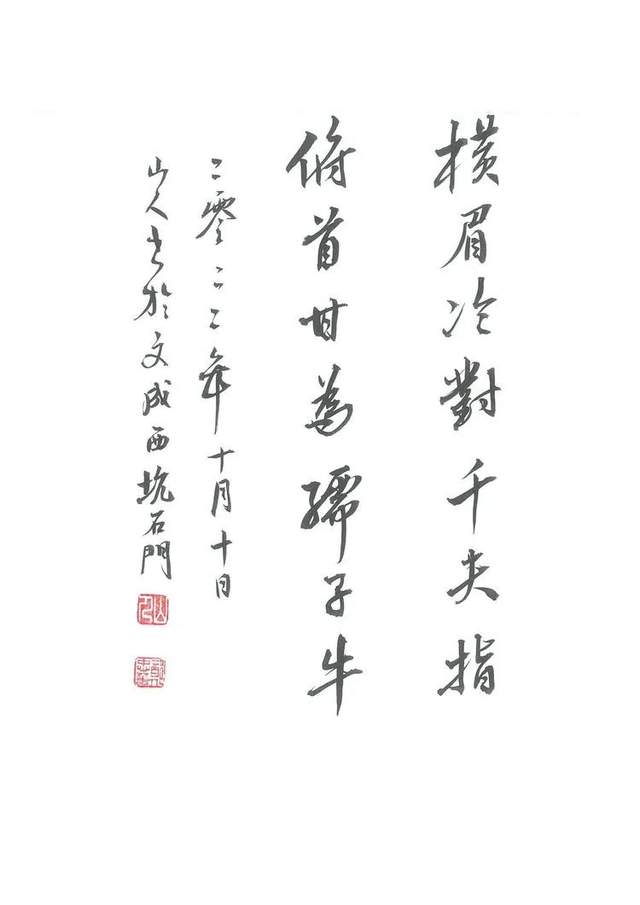 橫眉冷對千夫指
俯首甘為孺子牛
二零二二年十月十日
山人書於文成西坑石門
山人